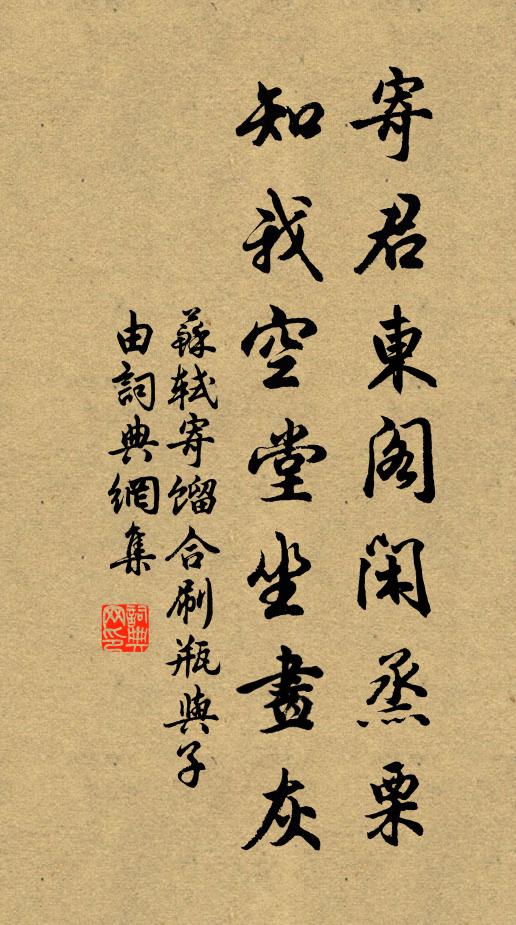 寄君東閣閑蒸栗
知我空堂坐畫灰
蘇軾寄馏合刷瓶與子
由詞典網集
詞典網印